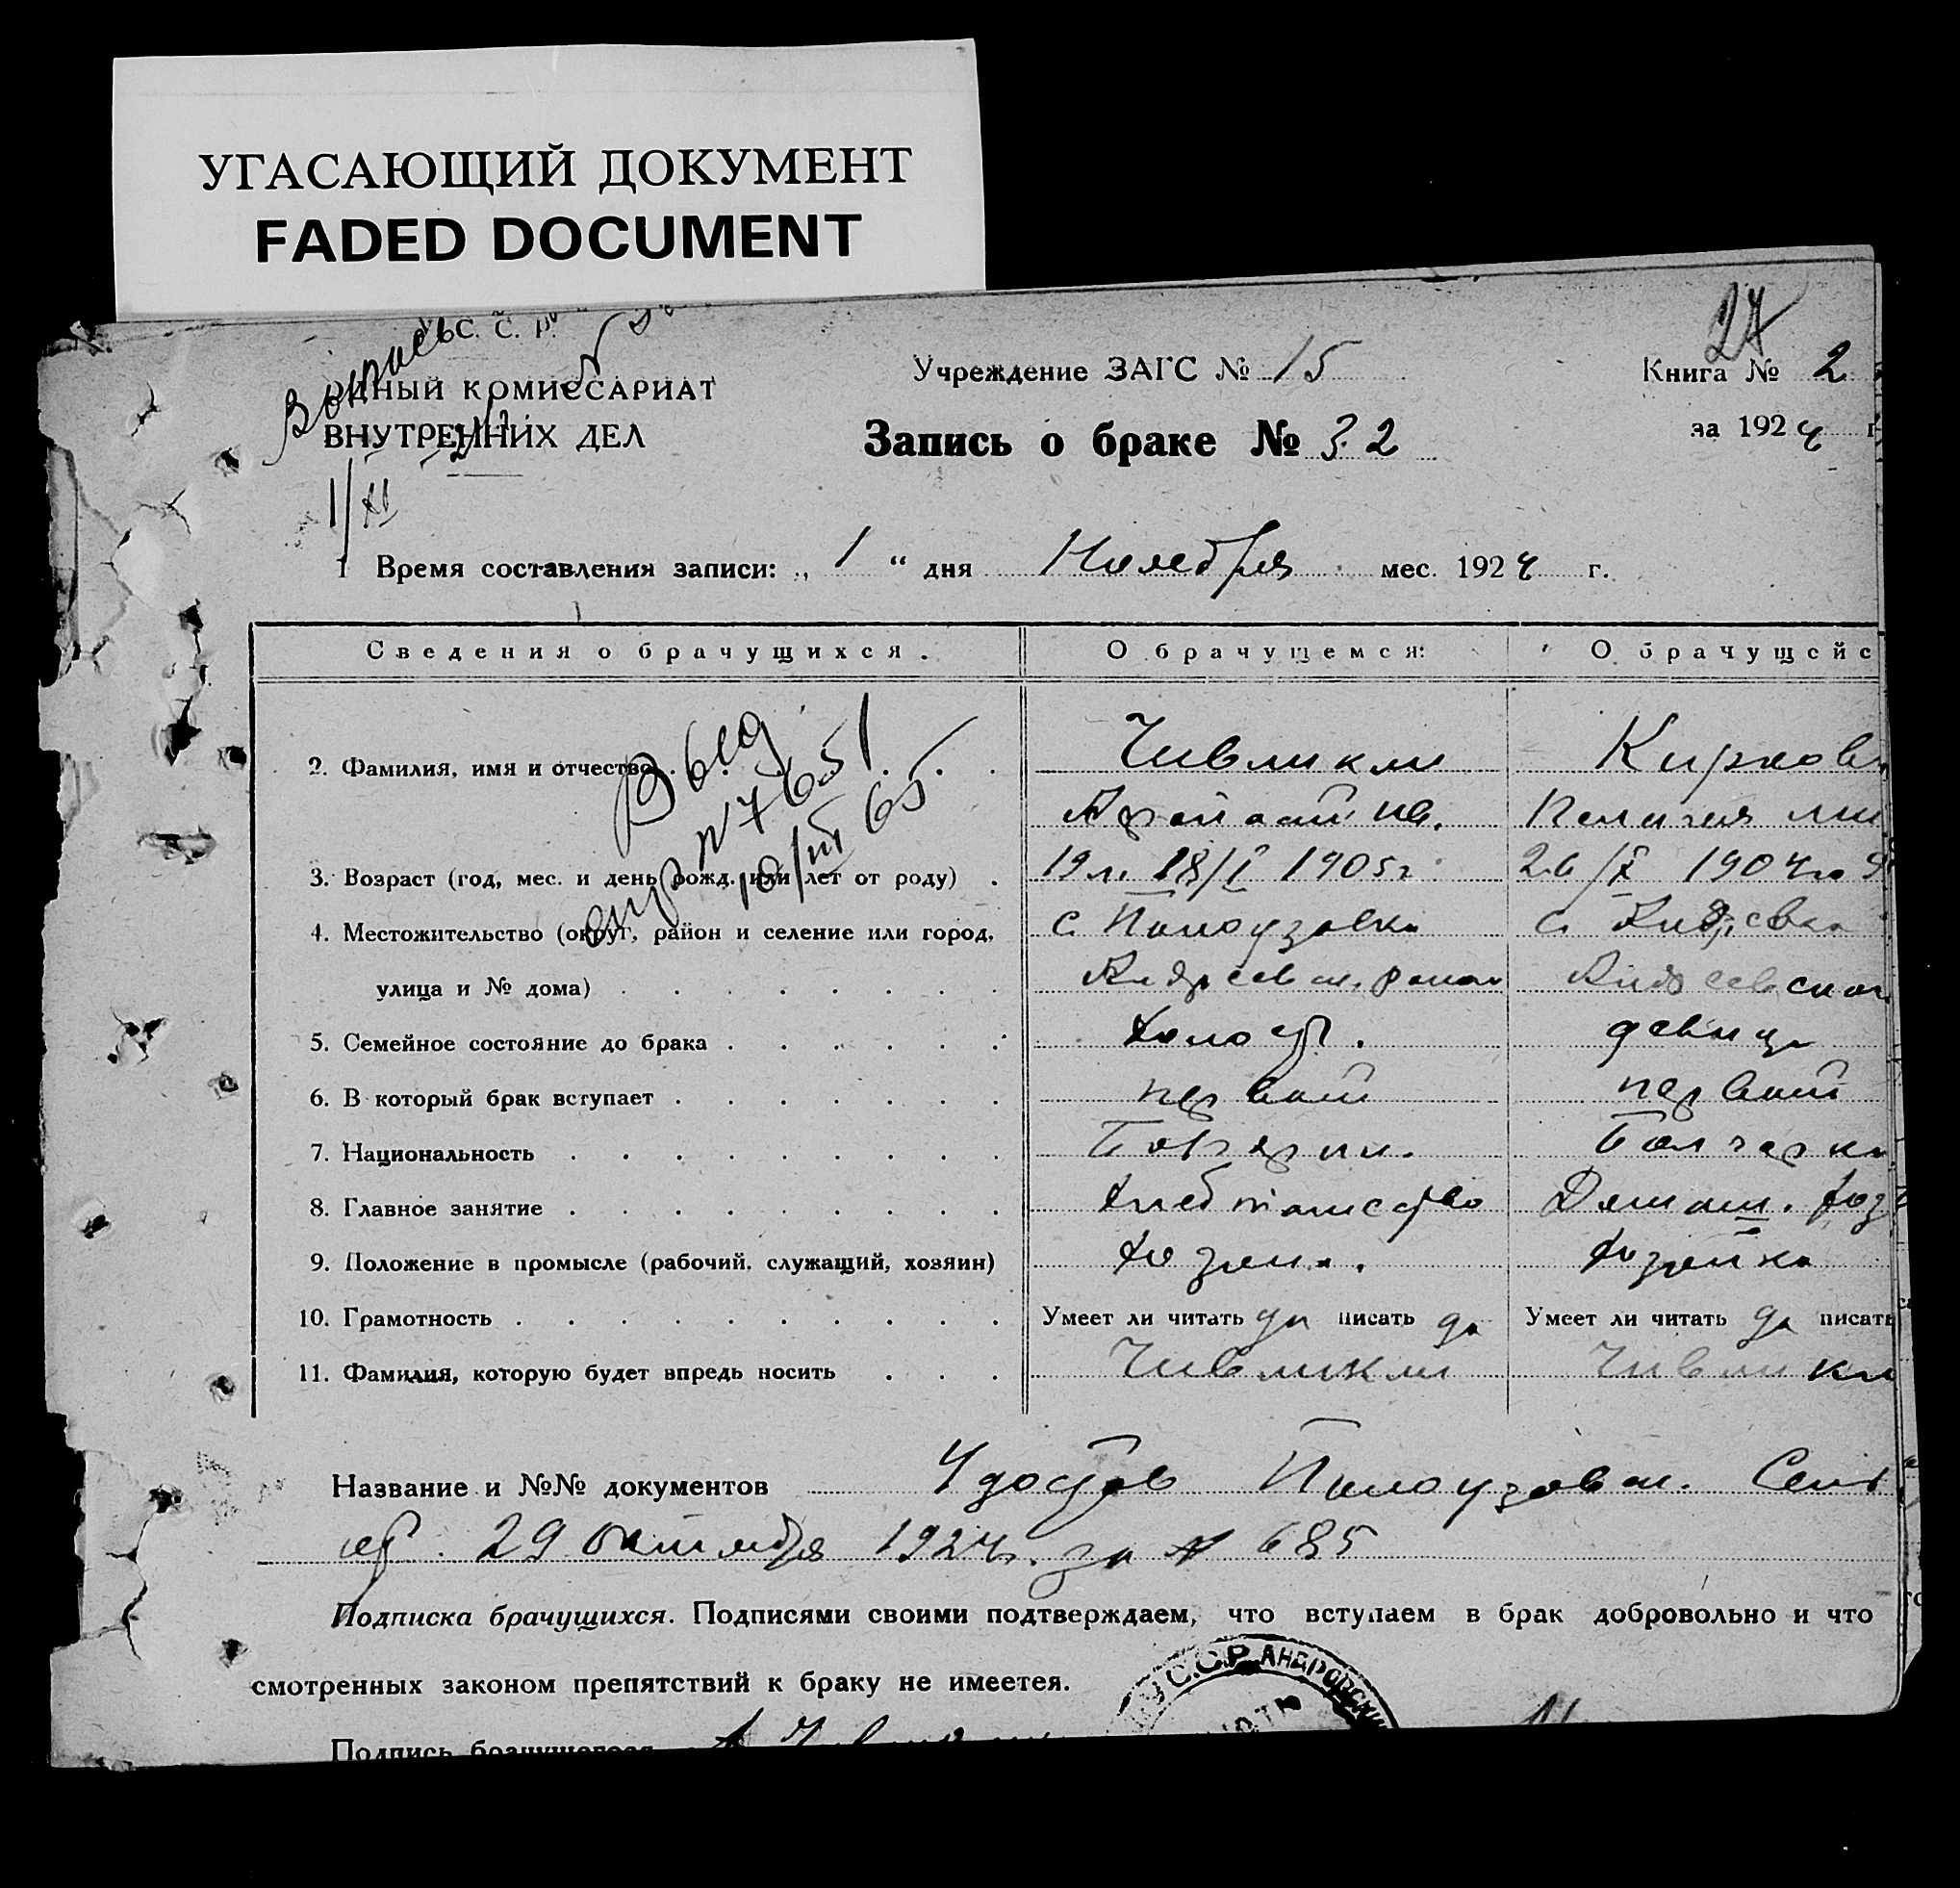 УГАСАЮЩИЙ ДОКУМЕНТ
FADED DOCUMENT
27
У. С. С. Р.
ДНЫЙ КОМИССАРИАТ
ВНУТРЕННИХ ДЕЛ
Учреждение ЗАГС № 15
Книга № 2
Запись о браке № 32
за 1924 г
1/XI
1 Время составления записи: „ 1 “ дня Ноября мес. 1924 г.
Сведения о брачущихся.
О брачущемся:
О брачущейс
Выд
N 7651
10/III 65
2. Фамилия, имя и отчество
Чивликли
Киркова
Ив.
Пелагия Ми
3. Возраст (год, мес. и день рожд. или лет от роду)
19 л. 18/I 1905 г
26/X 1904 го
4. Местожительство (округ, район и селение или город,
с.
с.
улица и № дома)
Андреевск. район
Андреевском
5. Семейное состояние до брака
Холост.
девица
6. В который брак вступает
первый
первый
7. Национальность
Болгарин.
Болгарка
8. Главное занятие
Хлебопашество
Домаш. хоз
9. Положение в промысле (рабочий, служащий, хозяин)
Хозяин.
Хозяйка
10. Грамотность
Умеет ли читать да писать да
Умеет ли читать да писать
11. Фамилия, которую будет впредь носить
Чивликли
Чивликли
Название и №№ документов Удостов Сель
29 Октября 1924 г. за № 685
Подписка брачущихся. Подписями своими подтверждаем, что вступаем в брак добровольно и что
смотренных законом препятствий к браку не имеется.
У С.С.Р. АНДРОВСКИ
Подпись брачущегося